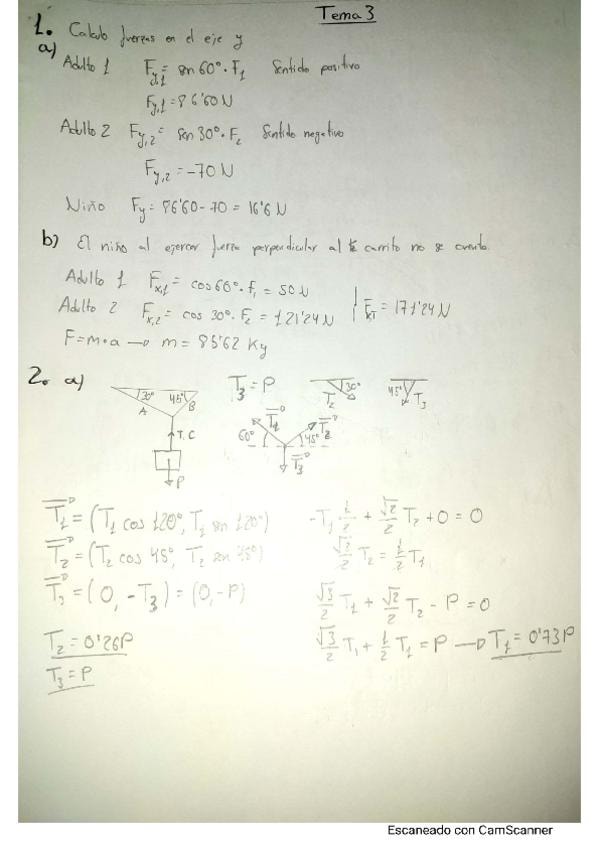 Tema 3
1. Calculo fuerzas en el eje y
a)
Adulto 1 Fy,1 = sen 60º · F1 Sentido positivo
Fy,1 = 86'60 N
Adulto 2 Fy,2 = sen 30º · F2 Sentido negativo
Fy,2 = -70 N
Niño Fy = 86'60 - 70 = 16'6 N
b) El niño al ejercer fuerza perpendicular al carrito no se cuenta.
Adulto 1 Fx,1 = cos 60º · F1 = 50 N
Adulto 2 Fx,2 = cos 30º · F2 = 121'24 N | FxT = 171'24 N
F = m · a → m = 85'62 Kg
2. a)
30º 45º A B T.C P
T3 = P
60º T1 T2 45º T3
30º T2
45º T3
T1 = (T1 cos 120º, T1 sen 120º)
T2 = (T2 cos 45º, T2 sen 45º)
T3 = (0, -T3) = (0, -P)
T2 = 0'26P
T3 = P
-T1 · 1/2 + √2/2 T2 + 0 = 0
√2/2 T2 = 1/2 T1
√3/2 T1 + √2/2 T2 - P = 0
√3/2 T1 + 1/2 T1 = P → T1 = 0'73P
Escaneado con CamScanner